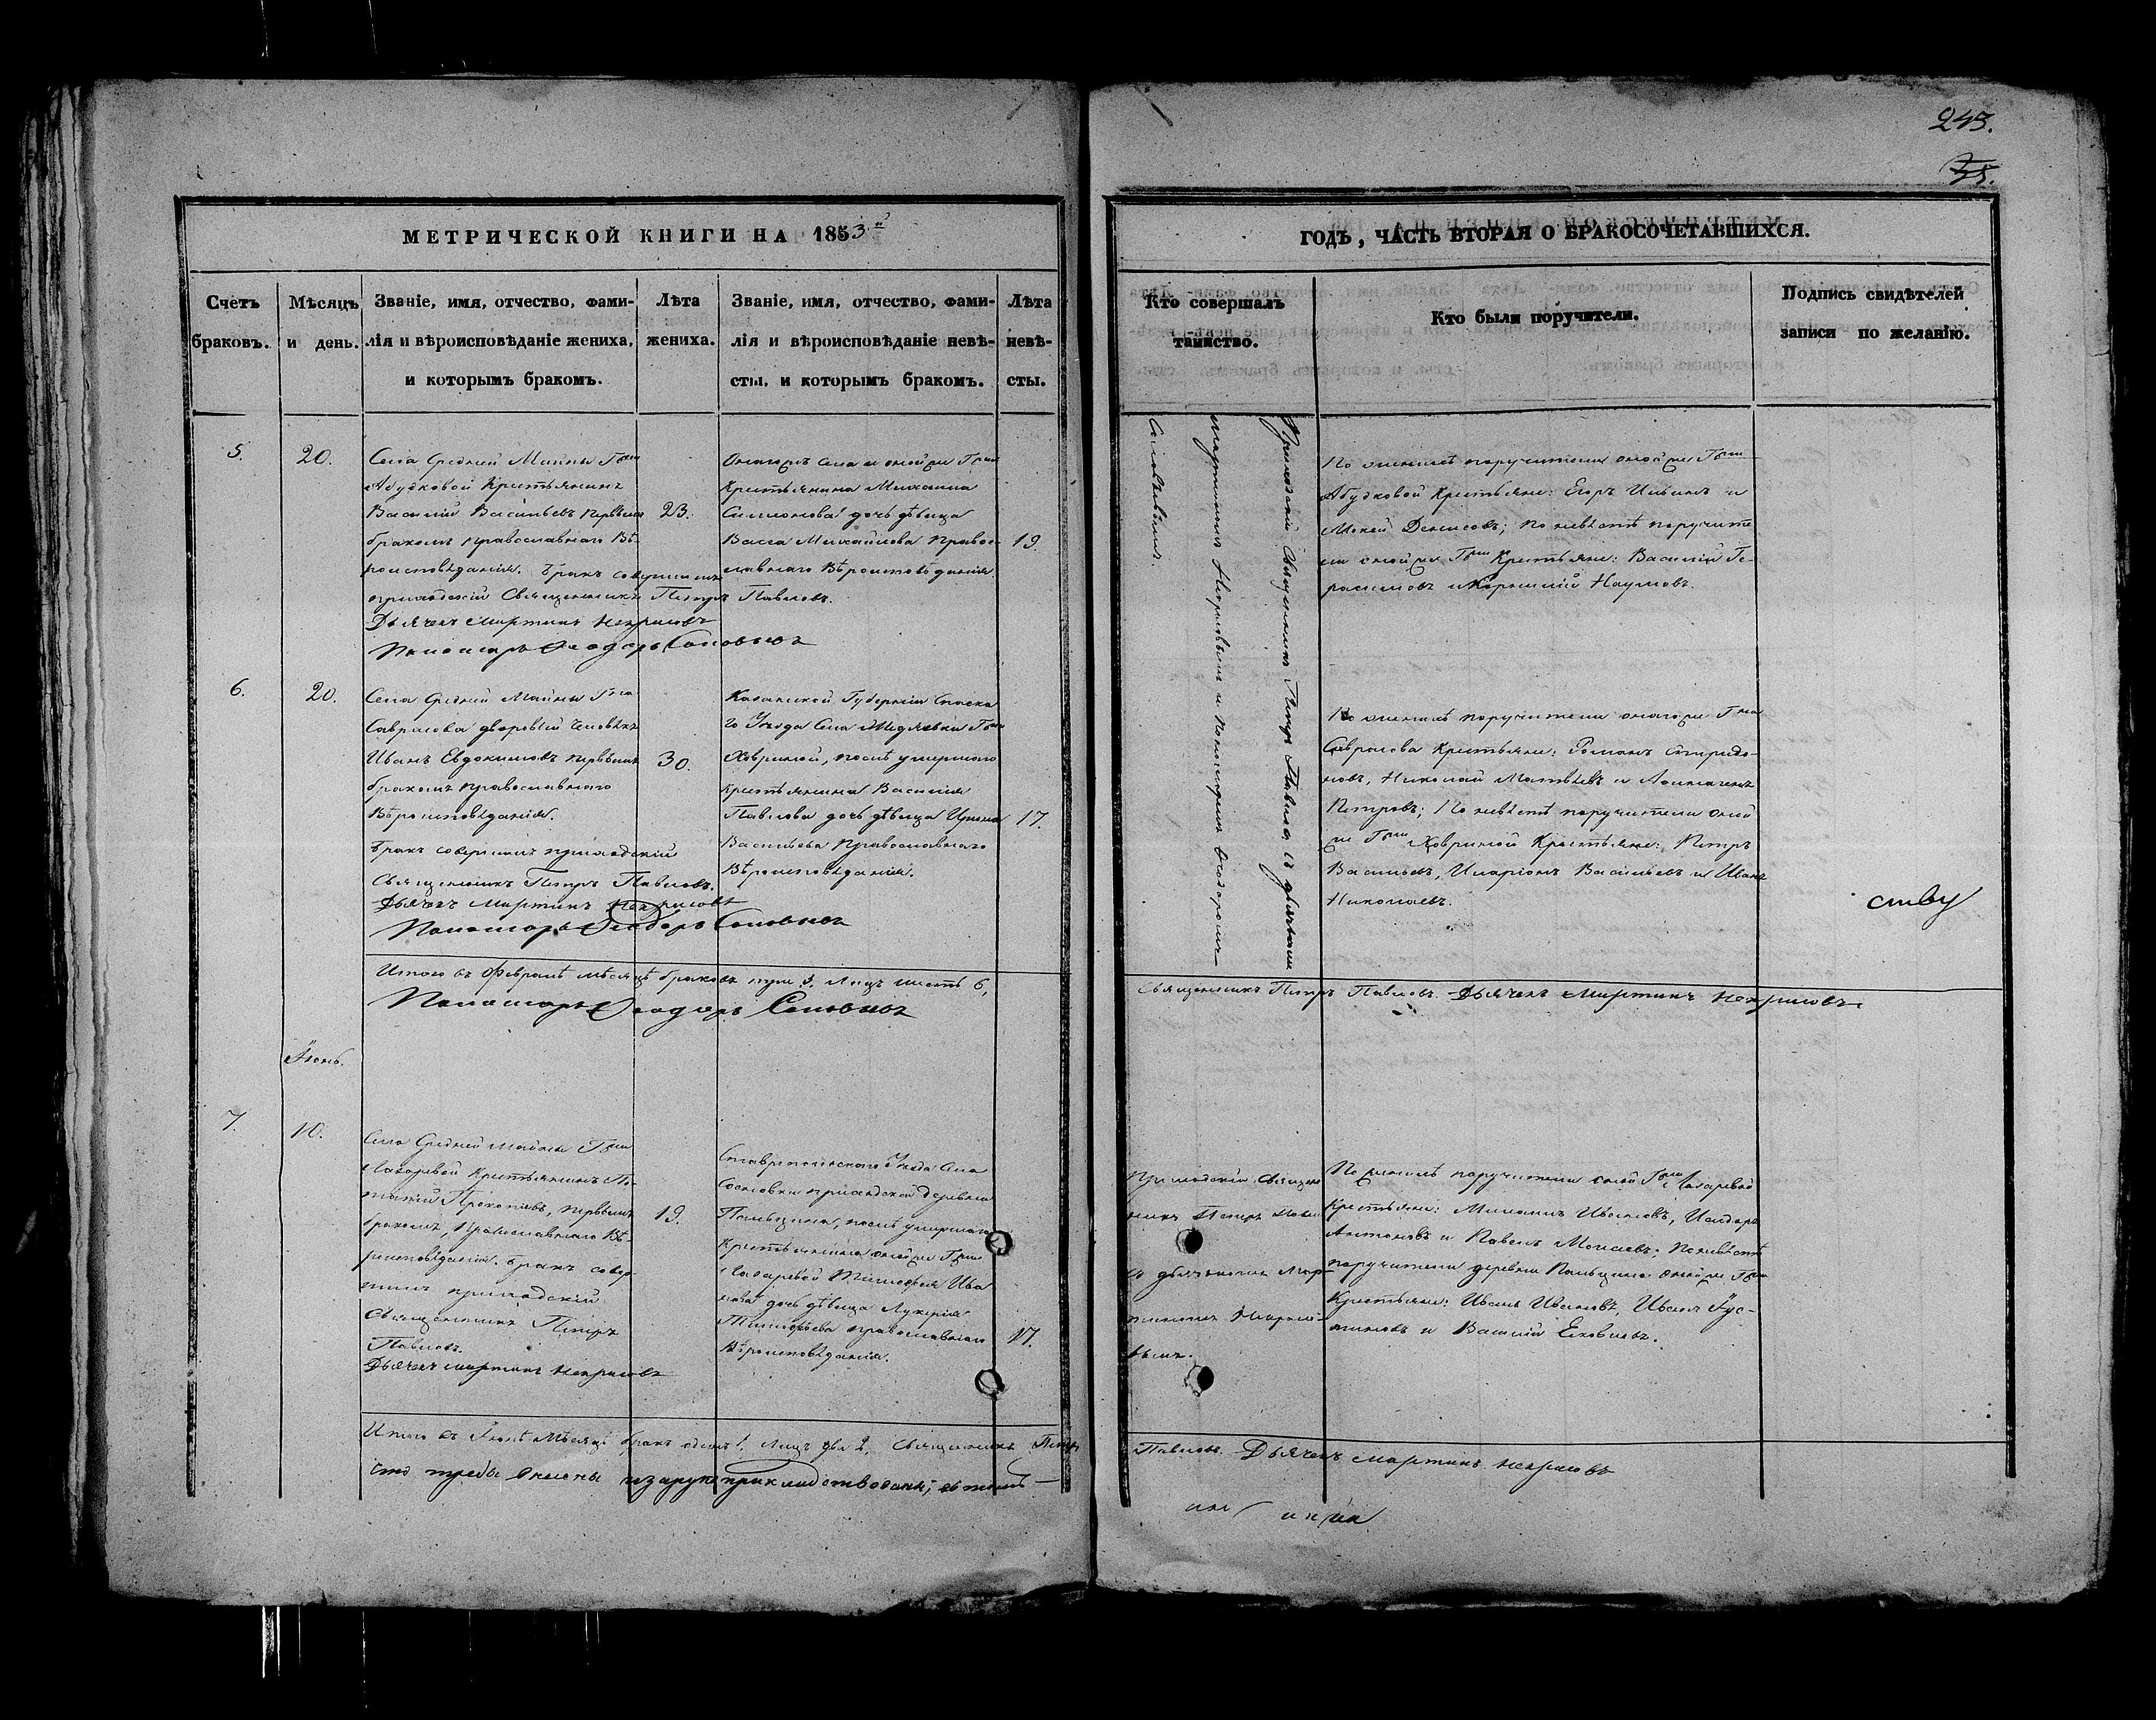 243.
35.
МЕТРИЧЕСКОЙ КНИГИ НА 1853й
Счетъ браковъ.
Мѣсяцъ и день.
Званіе, имя, отчество, фами-
лія и вѣроисповѣданіе жениха,
и которымъ бракомъ.
Лѣта
жениха.
Званіе, имя, отчество, фами-
лія и вѣроисповѣданіе невѣ-
сты, и которымъ бракомъ.
Лѣта
невѣ-
сты.
5.
20.
Села Средней Майны Гжи
Абудковой Крестьянинъ
Василій Васильевъ первымъ
бракомъ православнаго Вѣ-
роисповѣданія. Бракъ совершилъ
приходскій Священникъ Петръ Павловъ.
Дьячекъ Мартинъ Некрасовъ
Пономарь Ѳеодоръ Соловьевъ
23.
Онагожъ Села и онойже Гжи
Крестьянина Михаила
Симионова дочь дѣвица
Васса Михайлова Правос-
лавнаго Вѣроисповѣданія.
19.
6.
20.
Села Средней Майны Гна
Саврасова дворовый человѣкъ
Иванъ Евдокимовъ первымъ
бракомъ православнаго
Вѣроисповѣданія.
Бракъ совершилъ приходскій
Священникъ Петръ Павловъ.
Дьячекъ Мартинъ Некрасовъ
Пономарь Ѳеодоръ Соловьевъ
30.
Казанской Губерніи Спаска
го Уѣзда Села
Хавриной, послѣ умершаго
крестьянина Василія
Павлова дочь дѣвица Ирина
Васильева Православнаго
Вѣроисповѣданія.
17.
Итого въ Февралѣ мѣсяцѣ браковъ три 3. Лицъ шесть 6,
Пономарь Ѳеодоръ Соловьевъ
Іюнь.
7.
10.
Села Средней Майны Гжи
Лазаревой Крестьянинъ По-
тапій Прокопьевъ, первымъ
бракомъ, Православнаго Вѣ-
роисповѣданія. Бракъ совер-
шилъ приходскій
Священникъ Петръ
Павловъ.
Дьячекъ Мартинъ Некрасовъ
19.
Ставропольскаго Уѣзда Села
Сосновки приходской деревни
Пальцина, послѣ умершаго
Крестьянина онойже Гжи
Лазаревой Тимофея Ива
нова дочь дѣвица Лукерія
Тимофѣева православнаго
Вѣроисповѣданія.
17.
Итого въ Іюнѣ Мѣсяцѣ бракъ одинъ 1. Лицъ два 2. Священникъ Петръ
что требы внесены и зарукоприкладствованы, въ томъ
ГОДЪ, ЧАСТЬ ВТОРАЯ О БРАКОСОЧЕТАВШИХСЯ.
Кто совершалъ
таинство.
Кто были поручители.
Подпись свидѣтелей
записи по желанію.
Приходскій Священникъ Петръ Павловъ съ дьячкомъ
Мартиномъ Некрасовымъ и Пономаремъ Ѳеодоромъ
Соловьевымъ.
По женихѣ поручители онойже Гжи
Абудковой Крестьяне: Егоръ Ильинъ и
Мокей Денисовъ; по невѣстѣ поручите
ли онойже Гжи Крестьяне: Василій Ге-
расимовъ и Корнилій Наумовъ.
По женихѣ поручители онагоже Гна
Саврасова Крестьяне: Романъ Спиридо-
новъ, Николай Матвѣевъ и
Петровъ; По невѣстѣ поручители оной
же Гжи Хавриной Крестьяне: Петръ
Васильевъ, Иларіонъ Васильевъ и Иванъ
Николаевъ.
ству
Священникъ Петръ Павловъ. Дьячекъ Мартинъ Некрасовъ.
Приходскій Священ
никъ Петръ Павло
съ дьячкомъ Мар-
тиномъ Некрасо-
вымъ.
По женихѣ поручители оной Гжи Лазаревой
Крестьяне: Иванъ Ивановъ, Исидоръ
Антоновъ и Павелъ Моисѣевъ; По невѣстѣ
поручители деревни Пальцина онойже Гжи
Крестьяне: Иванъ Ивановъ, Иванъ Іус-
тиновъ и Василій Яковлевъ.
Павловъ. Дьячекъ Мартинъ Некрасовъ